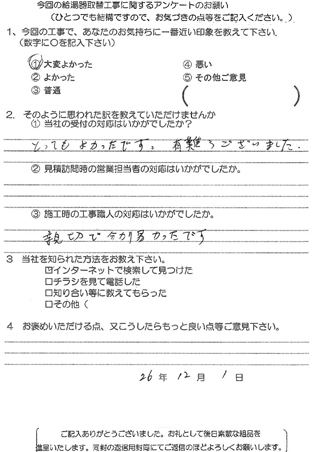 今回の給湯器取替工事に関するアンケートのお願い
（ひとつでも結構ですので、お気づきの点等をご記入ください。）
1、今回の工事で、あなたのお気持ちに一番近い印象を教えて下さい。
（数字に〇を記入下さい）
①大変よかった ④悪い
②よかった ⑤その他ご意見
③普通 （ ）
2. そのように思われた訳を教えていただけませんか
① 当社の受付の対応はいかがでしたか?
とってもよかったです。有難うございました.
② 見積訪問時の営業担当者の対応はいかがでしたか。
③ 施工時の工事職人の対応はいかがでしたか。
親切で分り易かったです
3 当社を知られた方法をお教え下さい。
☑インターネットで検索して見つけた
□チラシを見て電話した
□知り合い等に教えてもらった
□その他（
4 お褒めいただける点、又こうしたらもっと良い点等ご意見下さい。
26 年 12 月 1 日
ご記入ありがとうございました。お礼として後日素敵な粗品を
進呈いたします。同封の返信用封筒にてご返信のほどよろしくお願いします。